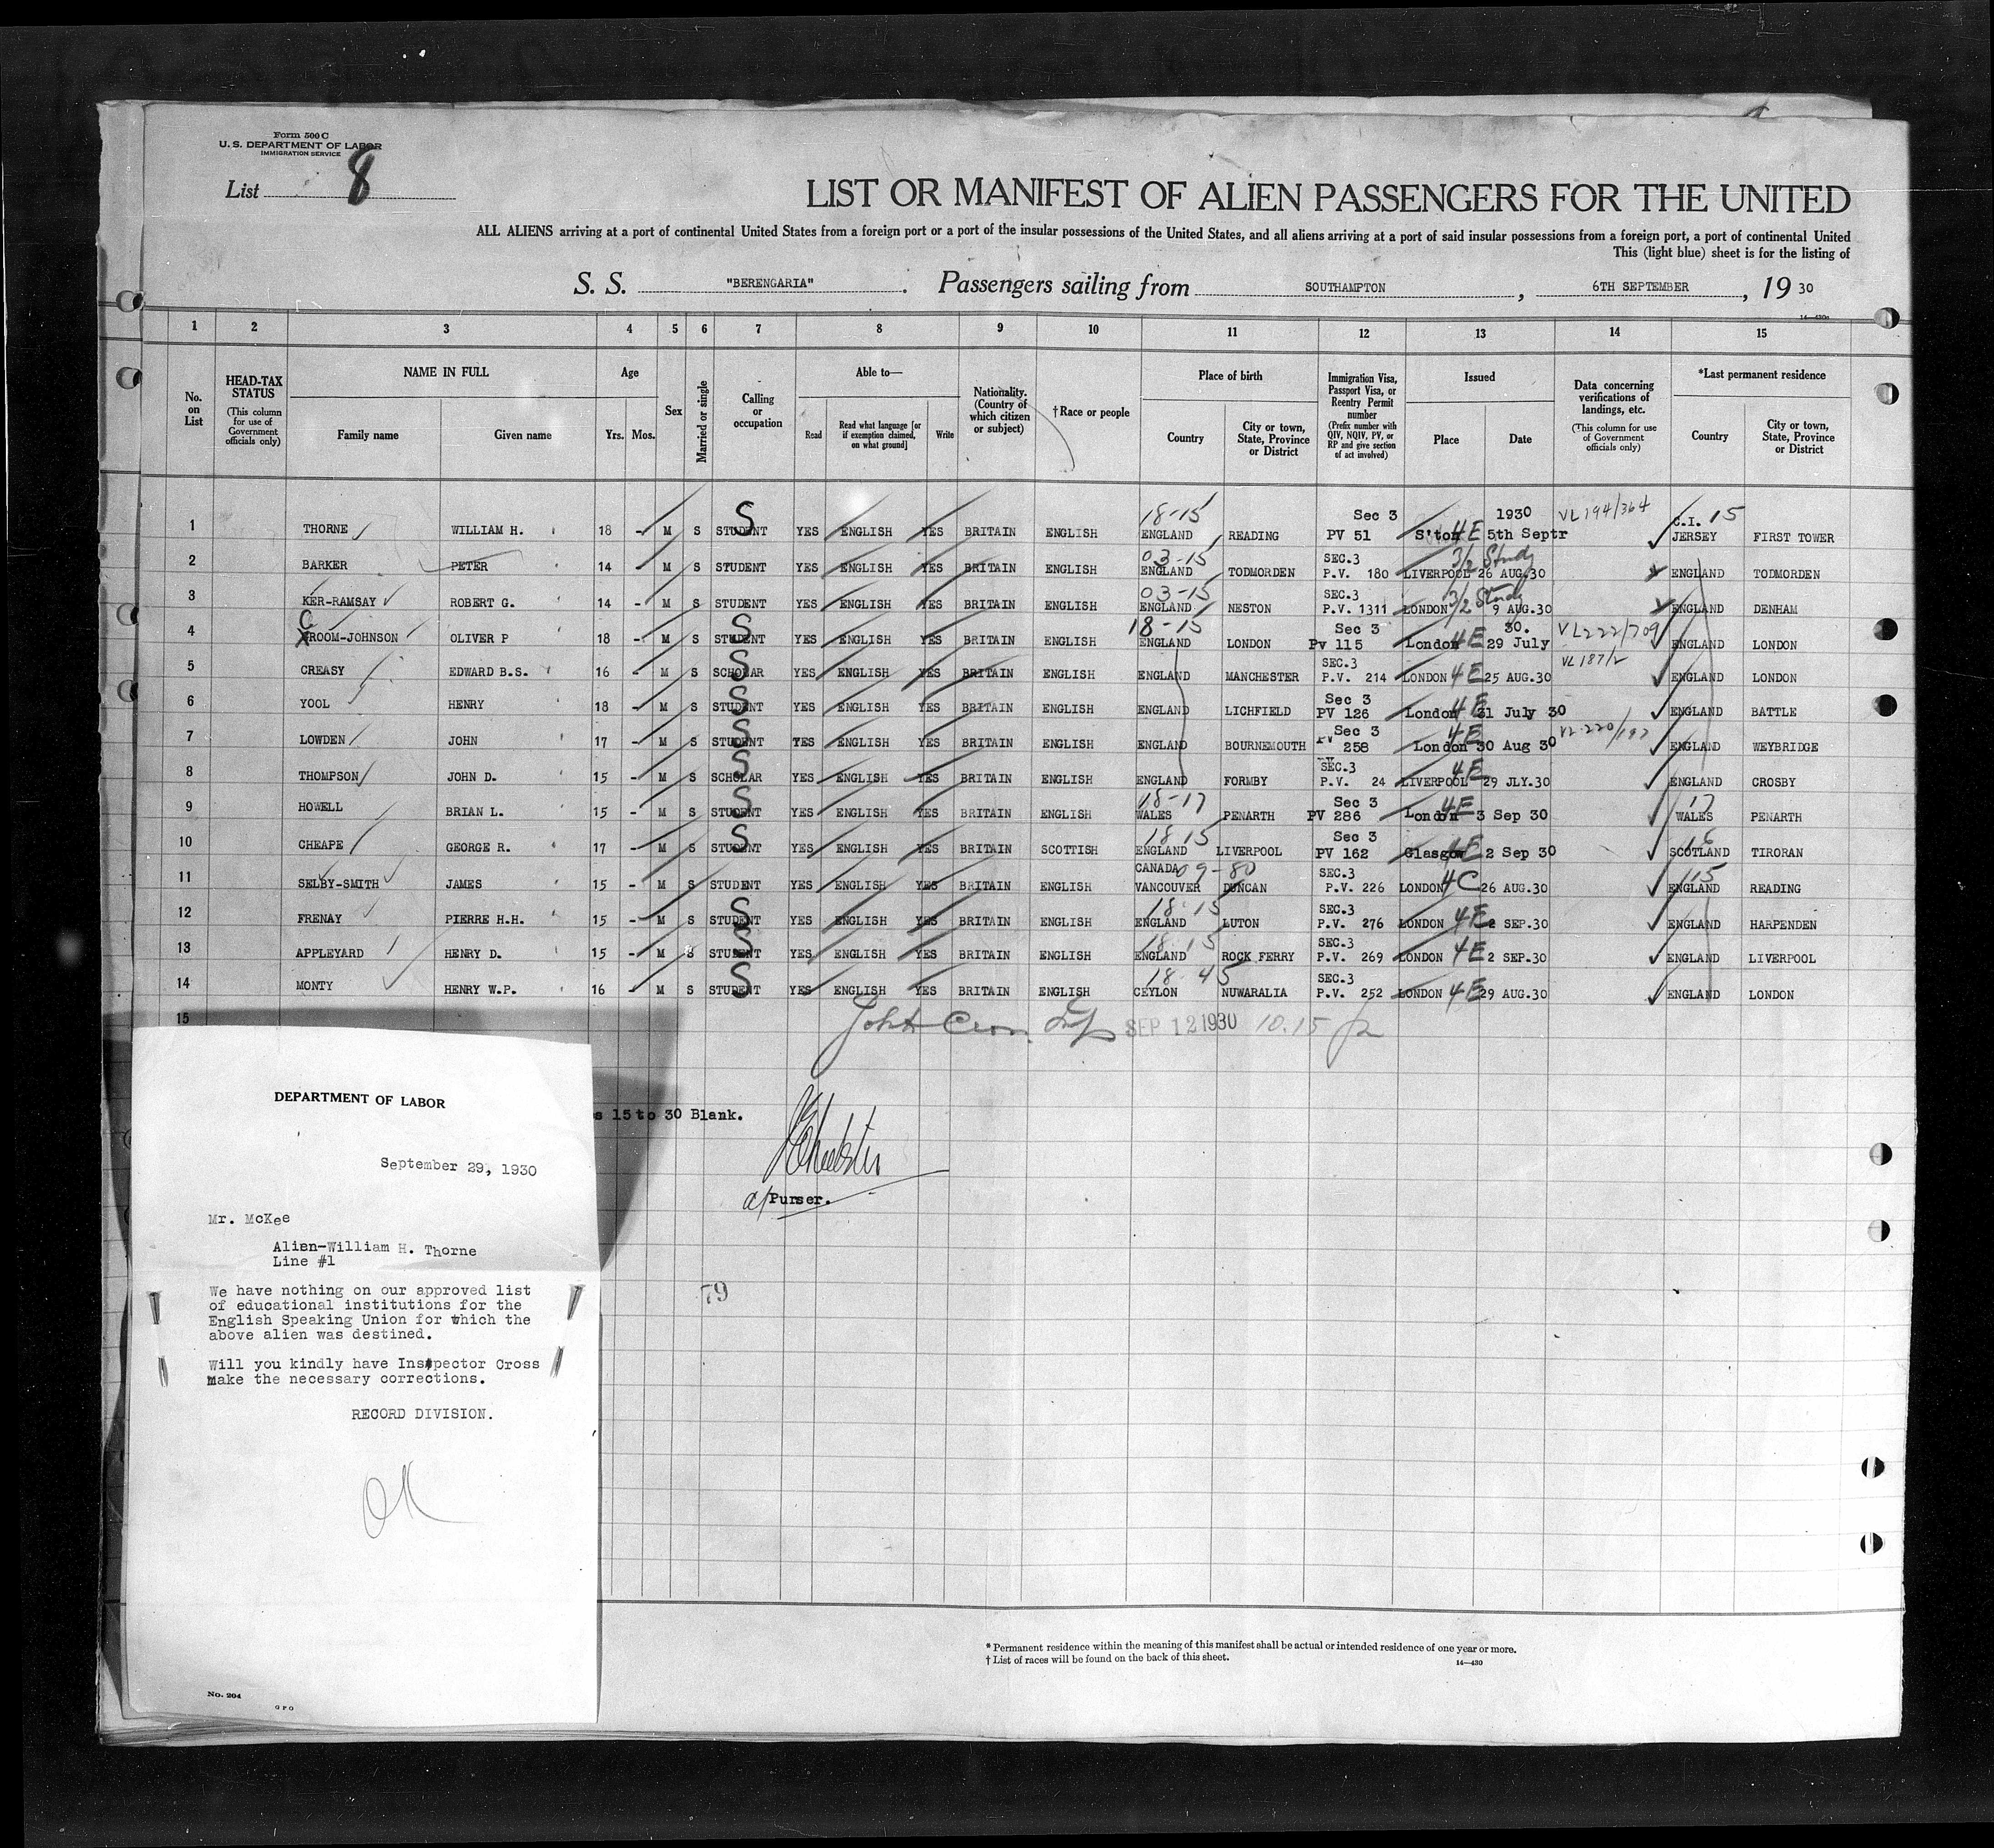 Form 500 C
U. S. DEPARTMENT OF LABOR
IMMIGRATION SERVICE
List 8
LIST OR MANIFEST OF ALIEN PASSENGERS FOR THE UNITED
ALL ALIENS arriving at a port of continental United States from a foreign port or a port of the insular possessions of the United States, and all aliens arriving at a port of said insular possessions from a foreign port, a port of continental United
This (light blue) sheet is for the listing of
S. S. "BERENGARIA". Passengers sailing from SOUTHAMPTON, 6TH SEPTEMBER, 19 30
1 2 3 4 5 6 7 8 9 10 11 12 13 14 15
No. on List
HEAD-TAX STATUS (This column for use of Government officials only)
NAME IN FULL Family name Given name
Age Yrs. Mos.
Sex
Married or single
Calling or occupation
Able to— Read Read what language [or if exemption claimed, on what ground] Write
Nationality. (Country of which citizen or subject)
†Race or people
Place of birth Country City or town, State, Province or District
Immigration Visa, Passport Visa, or Reentry Permit number (Prefix number with QIV, NQIV, PV, or RP and give section of act involved)
Issued Place Date
Data concerning verifications of landings, etc. (This column for use of Government officials only)
*Last permanent residence Country City or town, State, Province or District
18-15 Sec 3 1930 VL194/364 C.I. 15
1 THORNE WILLIAM H. 18 - M S STUDENT S YES ENGLISH YES BRITAIN ENGLISH ENGLAND READING PV 51 S'ton 4E 5th Septr JERSEY FIRST TOWER
03-15 SEC.3 3/2 Study
2 BARKER PETER 14 M S STUDENT YES ENGLISH YES BRITAIN ENGLISH ENGLAND TODMORDEN P.V. 180 LIVERPOOL 26 AUG.30 ENGLAND TODMORDEN
03-15 SEC.3 3/2 Study
3 KER-RAMSAY ROBERT G. 14 - M S STUDENT YES ENGLISH YES BRITAIN ENGLISH ENGLAND NESTON P.V. 1311 LONDON 9 AUG.30 ENGLAND DENHAM
18-15 Sec 3 30. VL222/709
4 CROOM-JOHNSON OLIVER P 18 - M S STUDENT S YES ENGLISH YES BRITAIN ENGLISH ENGLAND LONDON Pv 115 London 4E 29 July ENGLAND LONDON
SEC.3 VL187/2
5 CREASY EDWARD B.S. 16 - M S SCHOLAR S YES ENGLISH YES BRITAIN ENGLISH ENGLAND MANCHESTER P.V. 214 LONDON 4E 25 AUG.30 ENGLAND LONDON
Sec 3
6 YOOL HENRY 18 - M S STUDENT S YES ENGLISH YES BRITAIN ENGLISH ENGLAND LICHFIELD PV 126 London 4E 31 July 30 ENGLAND BATTLE
Sec 3
7 LOWDEN JOHN 17 - M S STUDENT S YES ENGLISH YES BRITAIN ENGLISH ENGLAND BOURNEMOUTH PV 258 London 4E 30 Aug 30 ENGLAND WEYBRIDGE
SEC.3
8 THOMPSON JOHN D. 15 - M S SCHOLAR S YES ENGLISH YES BRITAIN ENGLISH ENGLAND FORMBY P.V. 24 LIVERPOOL 4E 29 JLY.30 ENGLAND CROSBY
18-17 Sec 3 17
9 HOWELL BRIAN L. 15 - M S STUDENT S YES ENGLISH YES BRITAIN ENGLISH WALES PENARTH PV 286 London 4E 3 Sep 30 WALES PENARTH
18 15 Sec 3 16
10 CHEAPE GEORGE R. 17 - M S STUDENT S YES ENGLISH YES BRITAIN SCOTTISH ENGLAND LIVERPOOL PV 162 Glasgow 4E 2 Sep 30 SCOTLAND TIRORAN
CANADA 09-80 SEC.3 15
11 SELBY-SMITH JAMES 15 - M S STUDENT YES ENGLISH YES BRITAIN ENGLISH VANCOUVER DUNCAN P.V. 226 LONDON 4C 26 AUG.30 ENGLAND READING
18-15 SEC.3
12 FRENAY PIERRE H.H. 15 - M S STUDENT S YES ENGLISH YES BRITAIN ENGLISH ENGLAND LUTON P.V. 276 LONDON 4E 2 SEP.30 ENGLAND HARPENDEN
18-15 SEC.3
13 APPLEYARD HENRY D. 15 - M S STUDENT S YES ENGLISH YES BRITAIN ENGLISH ENGLAND ROCK FERRY P.V. 269 LONDON 4E 2 SEP.30 ENGLAND LIVERPOOL
18-45 SEC.3
14 MONTY HENRY W.P. 16 - M S STUDENT S YES ENGLISH YES BRITAIN ENGLISH CEYLON NUWARALIA P.V. 252 LONDON 4E 29 AUG.30 ENGLAND LONDON
15 SEP 12 1930 10.15
15 to 30 Blank.
a/Purser.
79
DEPARTMENT OF LABOR
September 29, 1930
Mr. McKee
Alien-William H. Thorne
Line #1
We have nothing on our approved list
of educational institutions for the
English Speaking Union for which the
above alien was destined.
Will you kindly have Inspector Cross
make the necessary corrections.
RECORD DIVISION.
OK
No. 204
GPO
* Permanent residence within the meaning of this manifest shall be actual or intended residence of one year or more.
† List of races will be found on the back of this sheet.
14—430